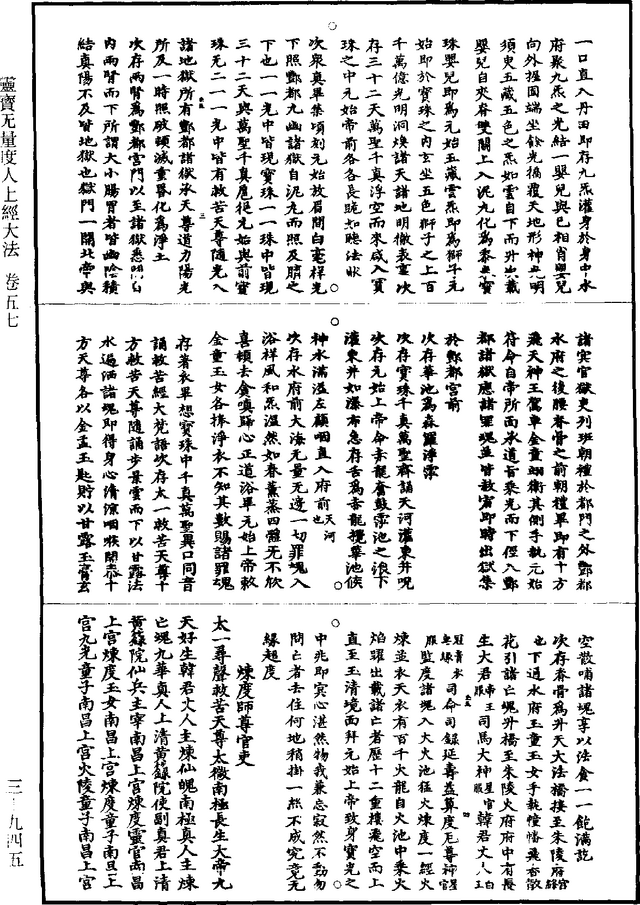 靈寶无量度人上經大法 卷五七
三-九四五
一口直入丹田即存九炁灌身於身中水
府聚九炁之光結一嬰兒與己相肖嬰兒
向外握固端坐餘光偹覆天地形神光明
須臾五藏五色之炁如雲自下而升共戴
嬰兒自夾脊雙關上入泥丸化為黍米寶
珠嬰兒即為元始五藏雲炁即為獅子元
始即於寶珠之內玄坐五色獅子之上百
千萬億光明洞煥諸天諸地明徹表裏次
存三十二天萬聖千真浮空而來咸入寶
珠之中元始帝前各各長跪如聽法狀
次衆真畢集頃刻元始放眉間白毫祥光
下照酆都九幽諸獄自泥丸而照及臍之
下也一一光中皆現寶珠一一珠中皆現
三十二天與萬聖千真扈從元始與前寶
珠无二一一光中皆有救苦天尊隨光入
諸地獄所有酆都諸獄承天尊道力陽光
所及一時照破頓滅重昏化為淨土
次存兩腎為酆都宮門以至諸獄悉開自
內兩腎而下所謂大小腸胃者皆幽陰積
結真陽不及皆地獄也獄門一開北帝與
諸冥官獄吏列班朝禮於都門之外酆都
水府之後腰脊骨之前朝禮畢即有十方
飛天神王駕車金童翊衛其側手執元始
符命自帝所面承道旨乘光而下徑入酆
都諸獄應諸罪魂並皆赦宥即時出獄集
於酆都宮前
次存華池為森羅淨霐
次存寶珠千真萬聖齊誦天河灌東井呪
次存元始上帝命赤龍奮䶮霐池之浪下
灌東井如瀑布急存舌為赤龍攪華池候
神水滿溢左顧咽直入府前天河也
次存水府前大海无量无邊一切罪魂入
浴祥風和炁溫然如春薰蒸四體无不欣
喜頓去貪嗔歸心正道浴畢元始上帝敕
金童玉女各捧淨衣不知其數賜諸罪魂
存著衣畢想寶珠中千真萬聖異口同音
誦救苦經大梵語次存太一救苦天尊十
方救苦天尊隨誦步景雲而下以甘露法
水遍洒諸魂即得身心清涼咽喉開泰十
方天尊各以金盂玉匙貯以甘露玉膏玄
空散哺諸魂享以法食一一飽滿訖
次存脊骨為升天大法橋接至朱陵府宮絳
也下通水府玉童玉女手執幢幡飛香散
花引諸亡魂升橋至朱陵火府府中有長
生大君帝王服司馬大神星官服韓君丈人白
冠青衣皂緣司命司錄延壽益算度厄尊神星冠
服監度諸魂入大火池猛火煉度一經火
煉並衣天衣有百千火龍自火池中乘火
焰躍出戴諸亡者歷十二重樓飛空而上
直至玉清境面拜元始上帝致身寶光之
中兆即冥心湛然物我兼忘寂然不動勿
問亡者去住何地稍掛一絲不成究竟无
緣超度
煉度師尊官吏
太一尋聲救苦天尊太微南極長生大帝九
天好生韓君丈人主煉仙魄南極真人主煉
亡魂九華真人上清黃籙院使副真君上清
黃籙院仙兵主宰南昌上宮煉度靈官南昌
上宮煉度玉女南昌上宮煉度童子南昌上
宮九光童子南昌上宮火陵童子南昌上宮